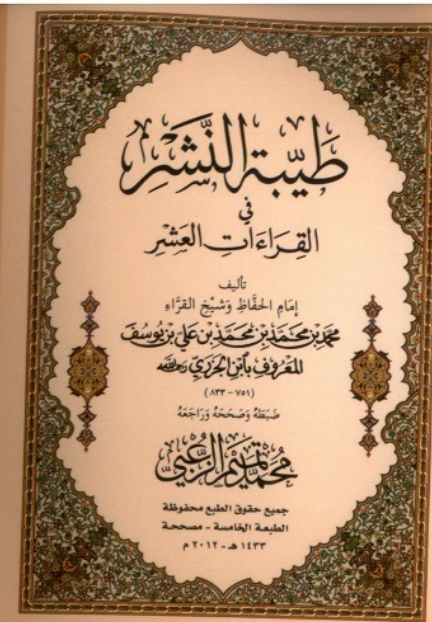 طَيِّبَةُ النَّشْرِ
فِي
القِرَاءَاتِ العَشْرِ
تأليف
إمَامِ الحُفَّاظِ وَشَيْخِ القُرَّاءِ
مُحَمَّدِ بْنِ مُحَمَّدِ بْنِ مُحَمَّدِ بْنِ عَلِيِّ بْنِ يُوسُفَ
المَعْرُوفِ بِابْنِ الجَزَرِيِّ رحمه الله
(٧٥١ - ٨٣٣)
ضَبَطَهُ وَصَحَّحَهُ وَرَاجَعَهُ
مُحَمَّد تَمِيم الزُّعْبِي
جميع حقوق الطبع محفوظة
الطبعة الخامسة - مصححة
١٤٣٣ هـ - ٢٠١٢ م